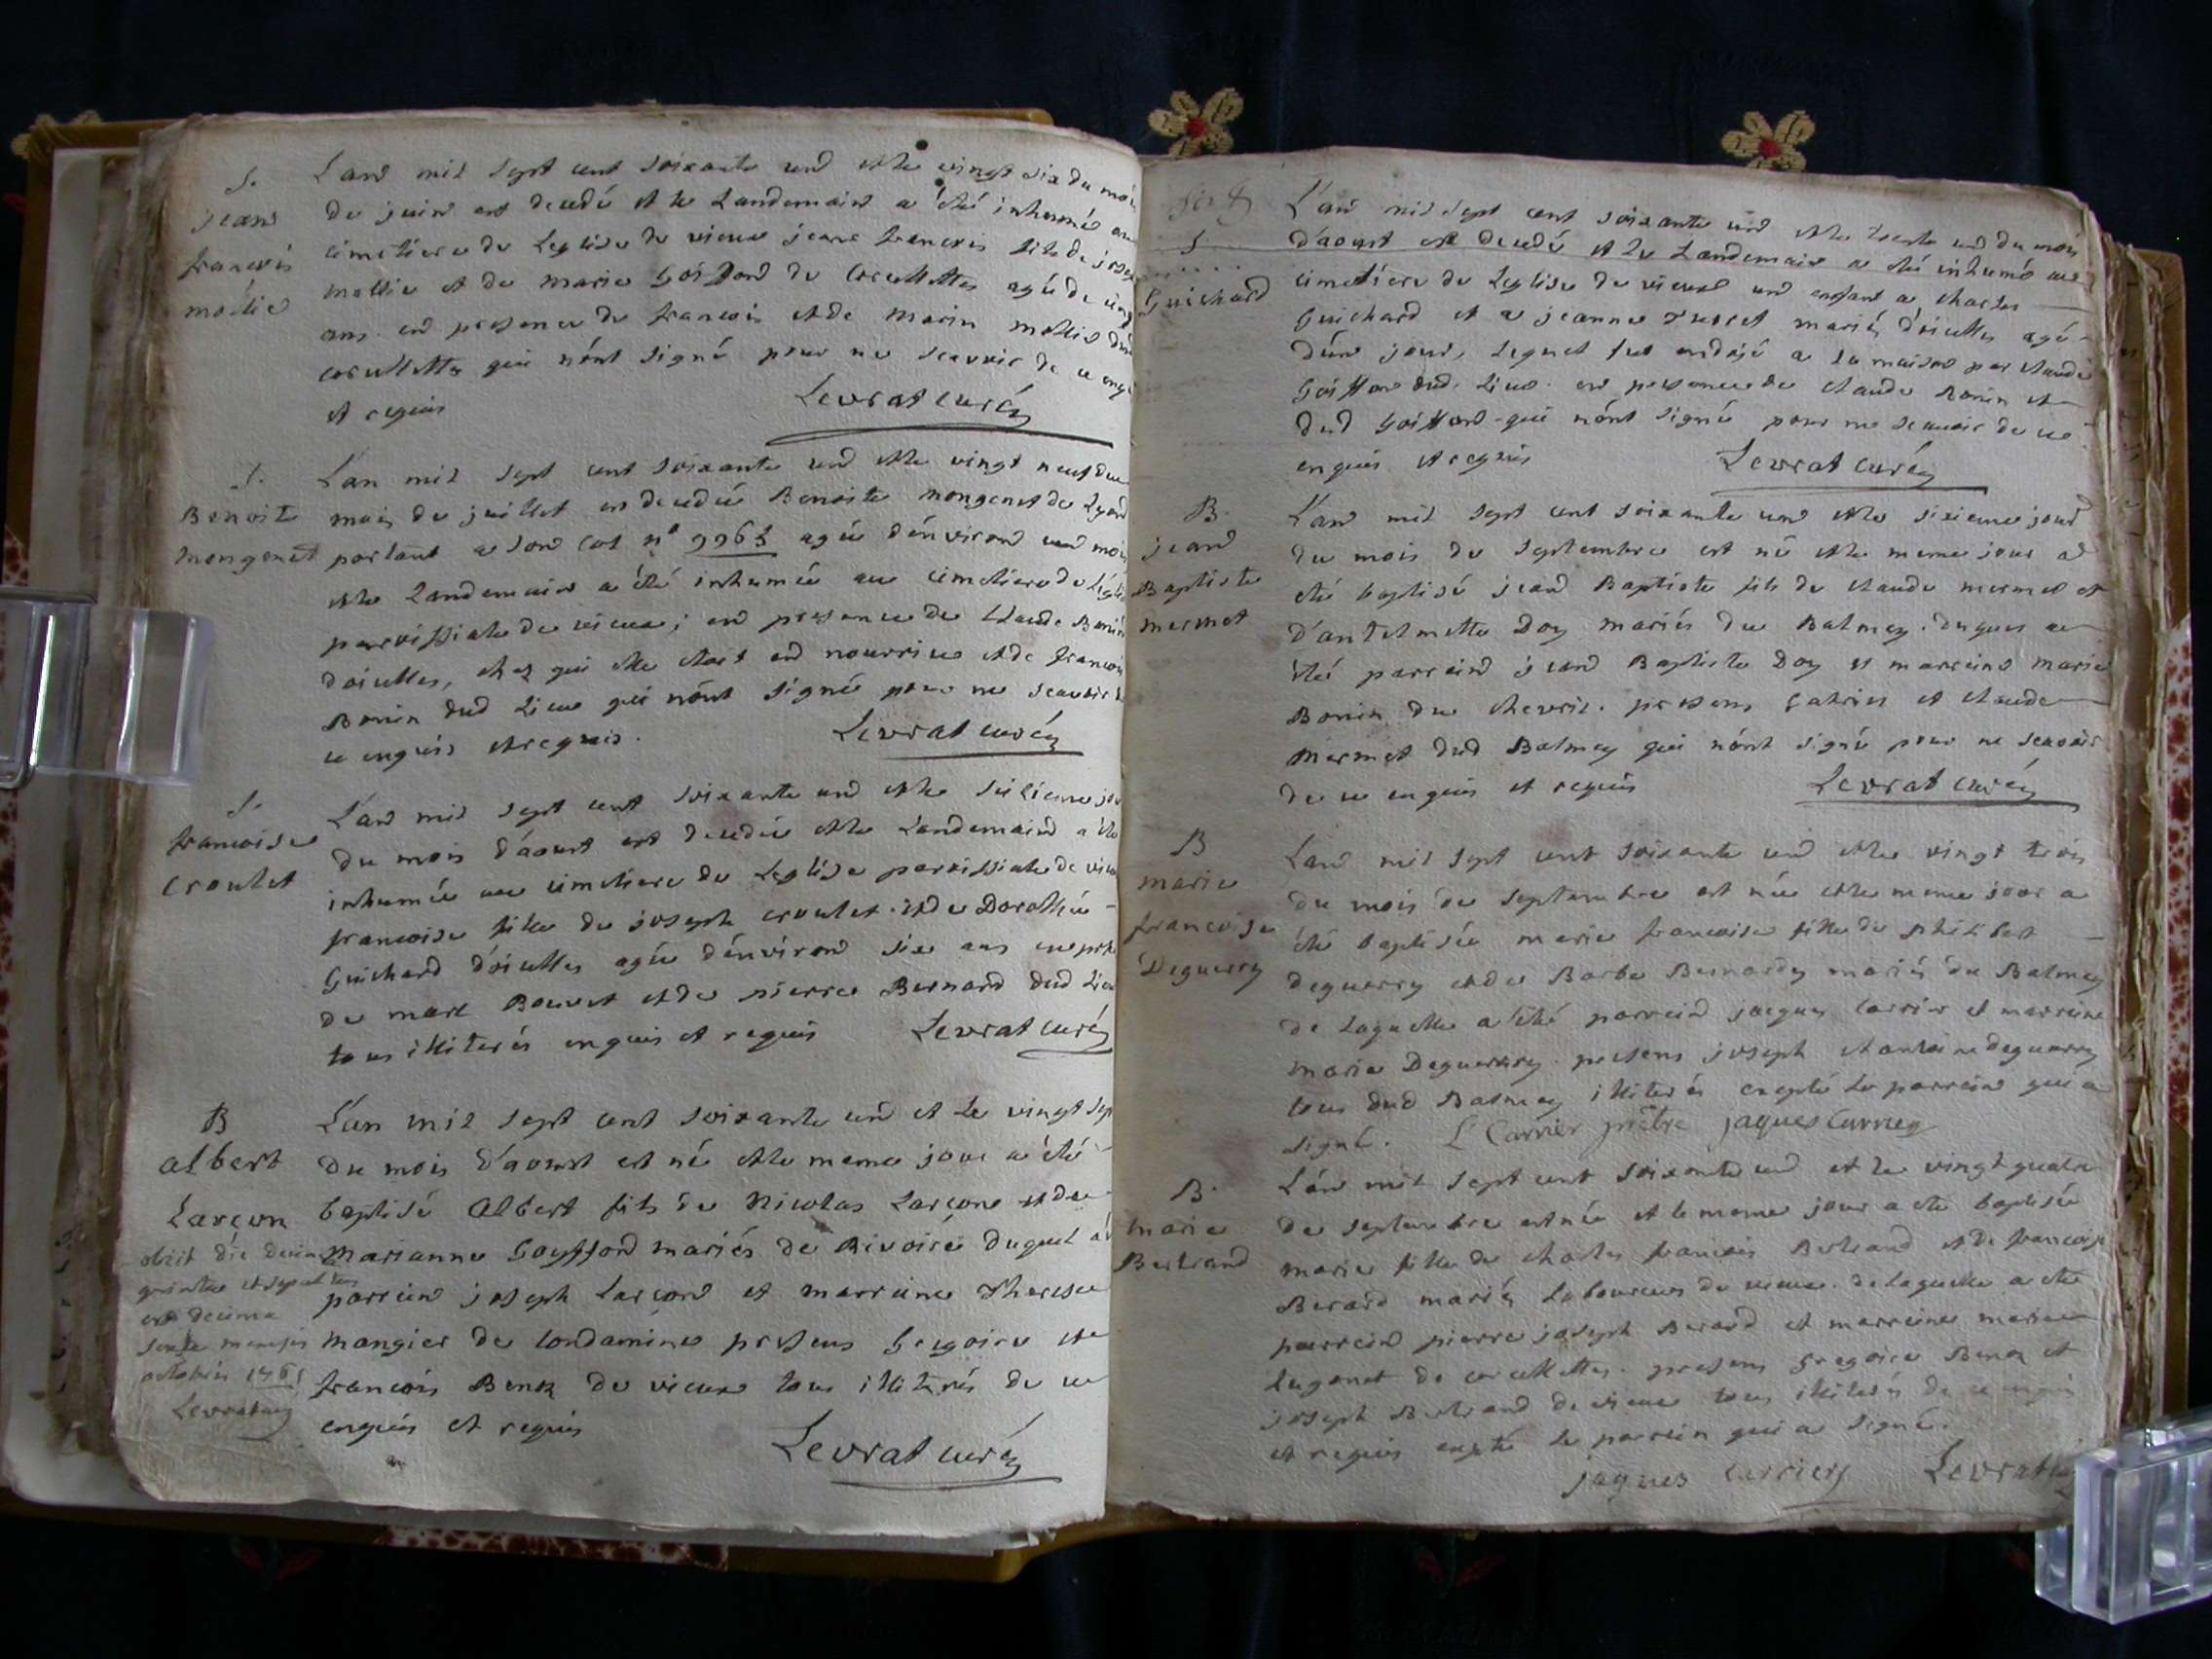 S.
jean
francois
mollie
L'an mil sept cent soixante und et le vingt six du mois
de juin est decedé et le Landemain a été inhumé au
cimetiere de Leglise de vieux jean francois fils de
mollie et de marie Goiffond de Corcellettes agé de
ans. en presence de francois et de marin mollie dud
corcellettes qui nónt signé pour ne scavoir de ce enqui
et requis
Levrat curéz
S.
Benoite
mongenet
L'an mil sept cent soixante und et le vingt neuf du
mois de juillet est decedeé Benoite mongenet de Lyond
portant a son col n° 9963 ageé dénvirond und mois
et le Landemain a été inhumeé au cimetiere de Leglis
parroissiale de vieux; end presence de Claude Bonin
doicelles, chez qui elle étoit end nourrice et de francois
Bonin dud Lieu qui nónt signé pour ne scavoir
ce enquis et requis.
Levrat curéz
S.
francoise
Croulet
L'an mil sept cent soixante und et le sixieme jour
du mois d'aoust est decedeé et le Landemaind a été
inhumeé au cimetiere de Leglise parroissiale de vieux
francoise fille de joseph croulet. et de Dorothée
Guichard dóicelles ageé dénvirond six ans en pres
de marc Bouvet et de pierre Bernard dud Lieu
tous illiterés enquis et requis
Levrat curéz
B
albert
Larçon
obiit die decima
quinta et sepultus
est decima
sexta mensis
octobris 1761
Levrat curéz
L'an mil sept cent soixante und et le vingt sep
du mois d'aoust est né et le meme jour a été
baptisé albert fils de Nicolas Larçon et de
marianne Goyffond mariés de Rivoire duquel a
parreind joseph Larçond et marreine Therese
mangier de Condamine presens Gregoire et
francois Benz de vieux tous illiterés de ce
enquis et requis
Levrat curéz
S.
Guichard
L'an mil sept cent soixante und et le trente und du mois
d'aoust est decedé et le Landemain a été inhumé au
cimetiere de Leglise de vieux und enfant a charles
Guichard et a jeanne mariés dóicelles agé
dún jour, Lequel fut ondoyé a la maison par claude
Goiffon dud. Lieu. en presence de claude Bonin et
dud Goiffond qui nónt signé pour ne scavoir de ce
enquis et requis
Levrat curéz
B.
jeand
Baptiste
mermet
L'an mil sept cent soixante und et le sixieme jour
du mois de septembre est né et le meme jour a
été baptisé jeand Baptiste fils de claude mermet et
d'antelmette Doy mariés du Balmey. duquel a
été parreind jeand Baptiste Doy et marreine marie
Bonin du chevril. presens Gabriel et claude
mermet dud Balmey qui nónt signé pour ne scavoir
de ce enquis et requis
Levrat curéz
B
marie
francoise
Deguerry
L'an mil sept cent soixante und et le vingt trois
du mois de septembre est née et le meme jour a
été baptiseé marie francoise fille de philibert
deguerry et de Barbe Bernardy mariés du Balmey
de Laquelle a été parreind jacques Carrier et marreine
marie Deguerry. presens joseph et antoine deguerry
tous dud Balmey illiterés excepté Le parrein qui a
signé. L Carrier prêtre jaques Carriez
B.
marie
Bertrand
L'an mil sept cent soixante und et le vingt quatre
de septembre est née et le meme jour a été baptiseé
marie fille de charles francois Bertrand et de francoise
Berard mariés Laboureurs de vieux. de Laquelle a été
parreind pierre joseph Berard et marreine marie
Lugonet de corcellettes. presens Gregoire Benz et
joseph Bertrand de vieux tous illiterés de ce enquis
et requis excepté Le parrein qui a signé.
jaques carriers Levrat